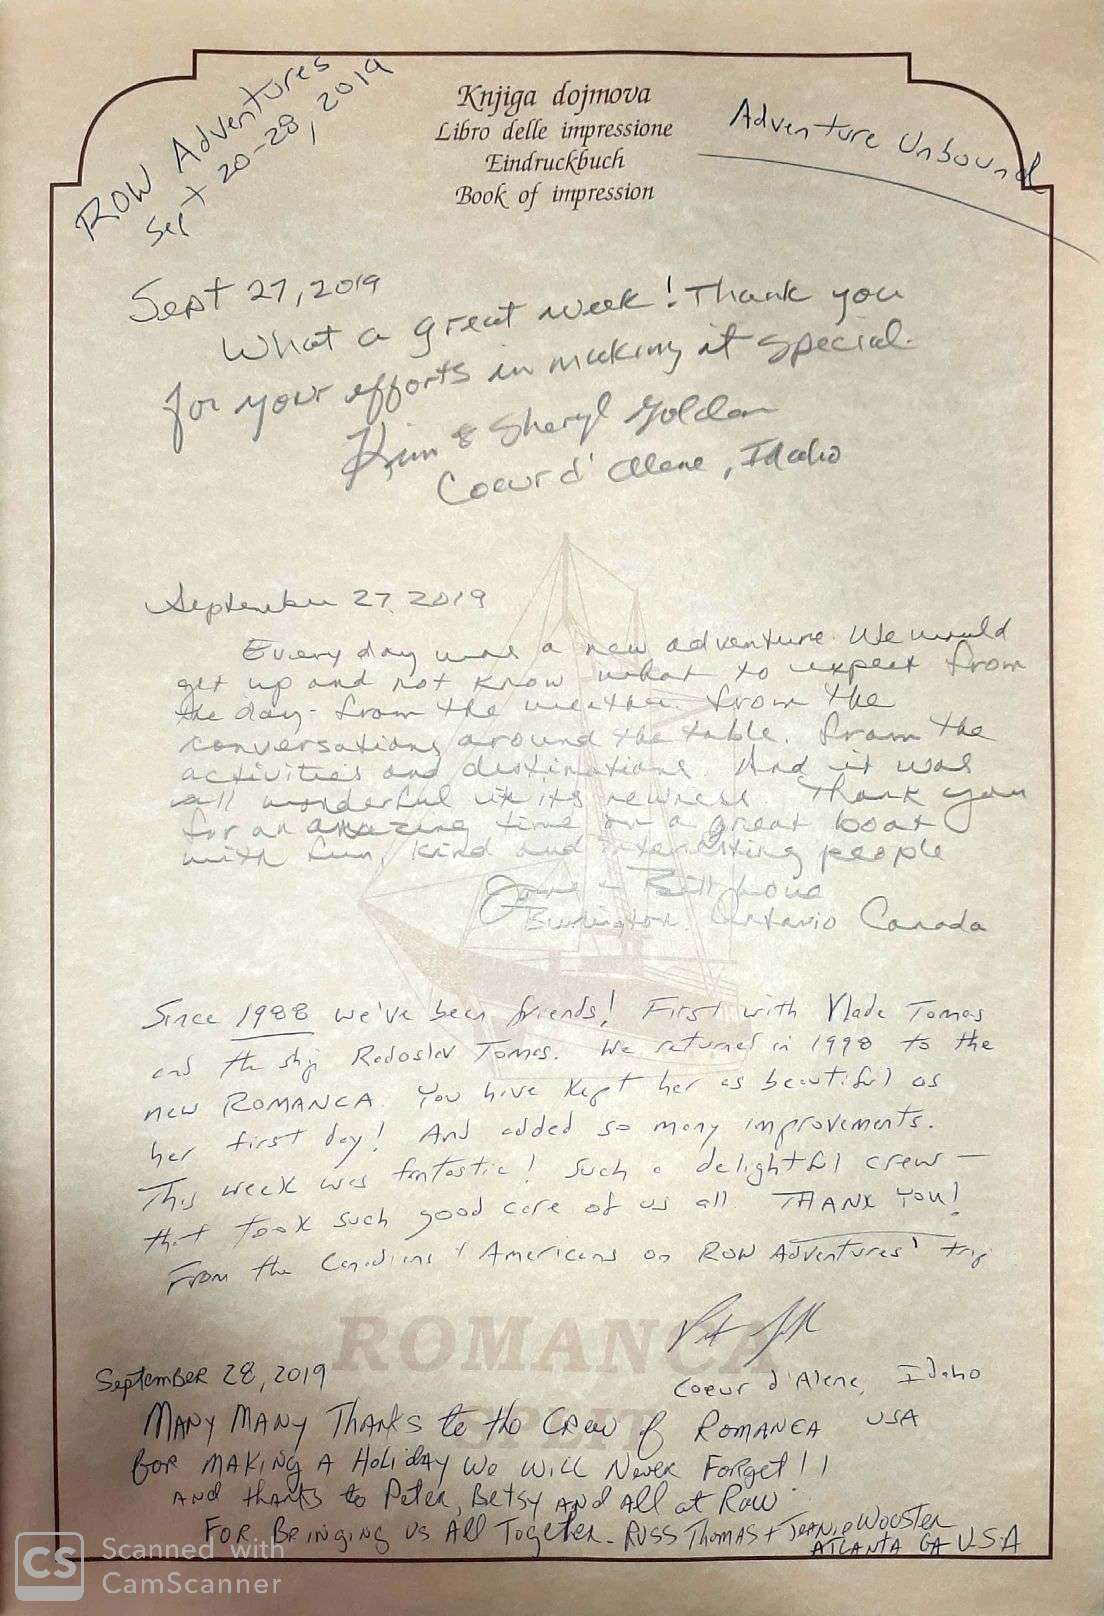 ROW Adventures
Sept 20-28, 2019
Knjiga dojmova
Libro delle impressione
Eindruckbuch
Book of impression
Adventure Unbound
Sept 27, 2019
What a great week! Thank you
for your efforts in making it special.
Kim & Sheryl Golden
Coeur d'Alene, Idaho
September 27, 2019
Every day was a new adventure. We would
get up and not know what to expect from
the day - from the weather. from the
conversations around the table. from the
activities and destinations. And it was
all wonderful in its newness. Thank you
for an amazing time on a great boat
with fun, kind and interesting people
Bill
Burlington Ontario Canada
Since 1988 we've been friends! First with Vlade Tomas
and the ship Radoslav Tomas. We returned in 1998 to the
new ROMANCA. You have kept her as beautiful as
her first day! And added so many improvements.
This week was fantastic! Such a delightful crew —
that took such good care of us all. THANK YOU!
From the Canadians & Americans on ROW Adventures' trip
Coeur d'Alene, Idaho
USA
ROMANCA
SPLIT
September 28, 2019
MANY MANY THANKS to the CREW of ROMANCA
FOR MAKING A HOLIDAY WE WILL NEVER FORGET!!
AND thanks to Peter, Betsy AND All at ROW
FOR BRINGING US All TOGETHER. RUSS THOMAS + JEANIE WOOSTER
ATLANTA GA U.S.A
CS Scanned with
CamScanner